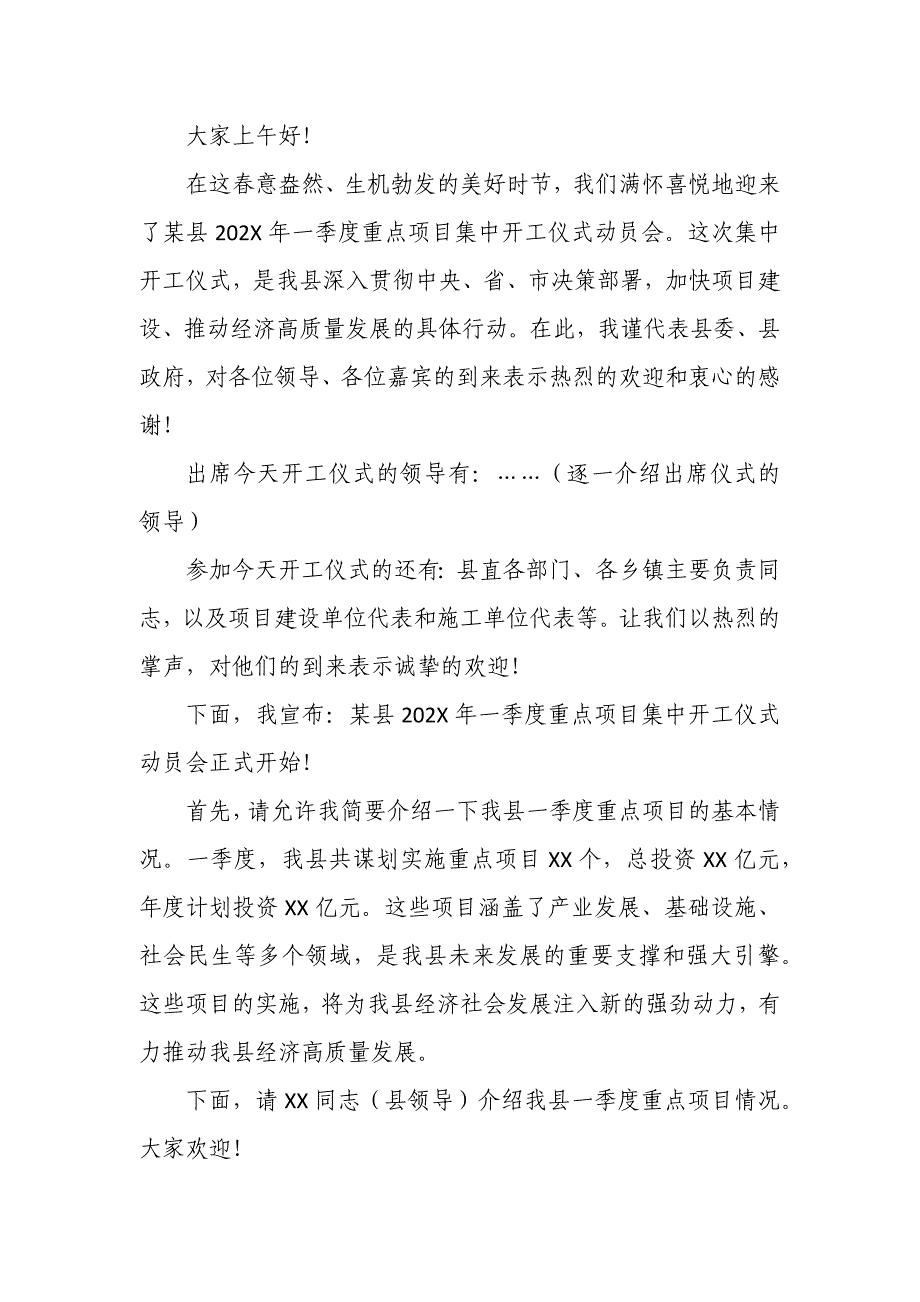 大家上午好！
在这春意盎然、生机勃发的美好时节，我们满怀喜悦地迎来
了某县 202X 年一季度重点项目集中开工仪式动员会。这次集中
开工仪式，是我县深入贯彻中央、省、市决策部署，加快项目建
设、推动经济高质量发展的具体行动。在此，我谨代表县委、县
政府，对各位领导、各位嘉宾的到来表示热烈的欢迎和衷心的感
谢！
出席今天开工仪式的领导有：……（逐一介绍出席仪式的
领导）
参加今天开工仪式的还有：县直各部门、各乡镇主要负责同
志，以及项目建设单位代表和施工单位代表等。让我们以热烈的
掌声，对他们的到来表示诚挚的欢迎！
下面，我宣布：某县 202X 年一季度重点项目集中开工仪式
动员会正式开始！
首先，请允许我简要介绍一下我县一季度重点项目的基本情
况。一季度，我县共谋划实施重点项目 XX 个，总投资 XX 亿元，
年度计划投资 XX 亿元。这些项目涵盖了产业发展、基础设施、
社会民生等多个领域，是我县未来发展的重要支撑和强大引擎。
这些项目的实施，将为我县经济社会发展注入新的强劲动力，有
力推动我县经济高质量发展。
下面，请 XX 同志（县领导）介绍我县一季度重点项目情况。
大家欢迎！